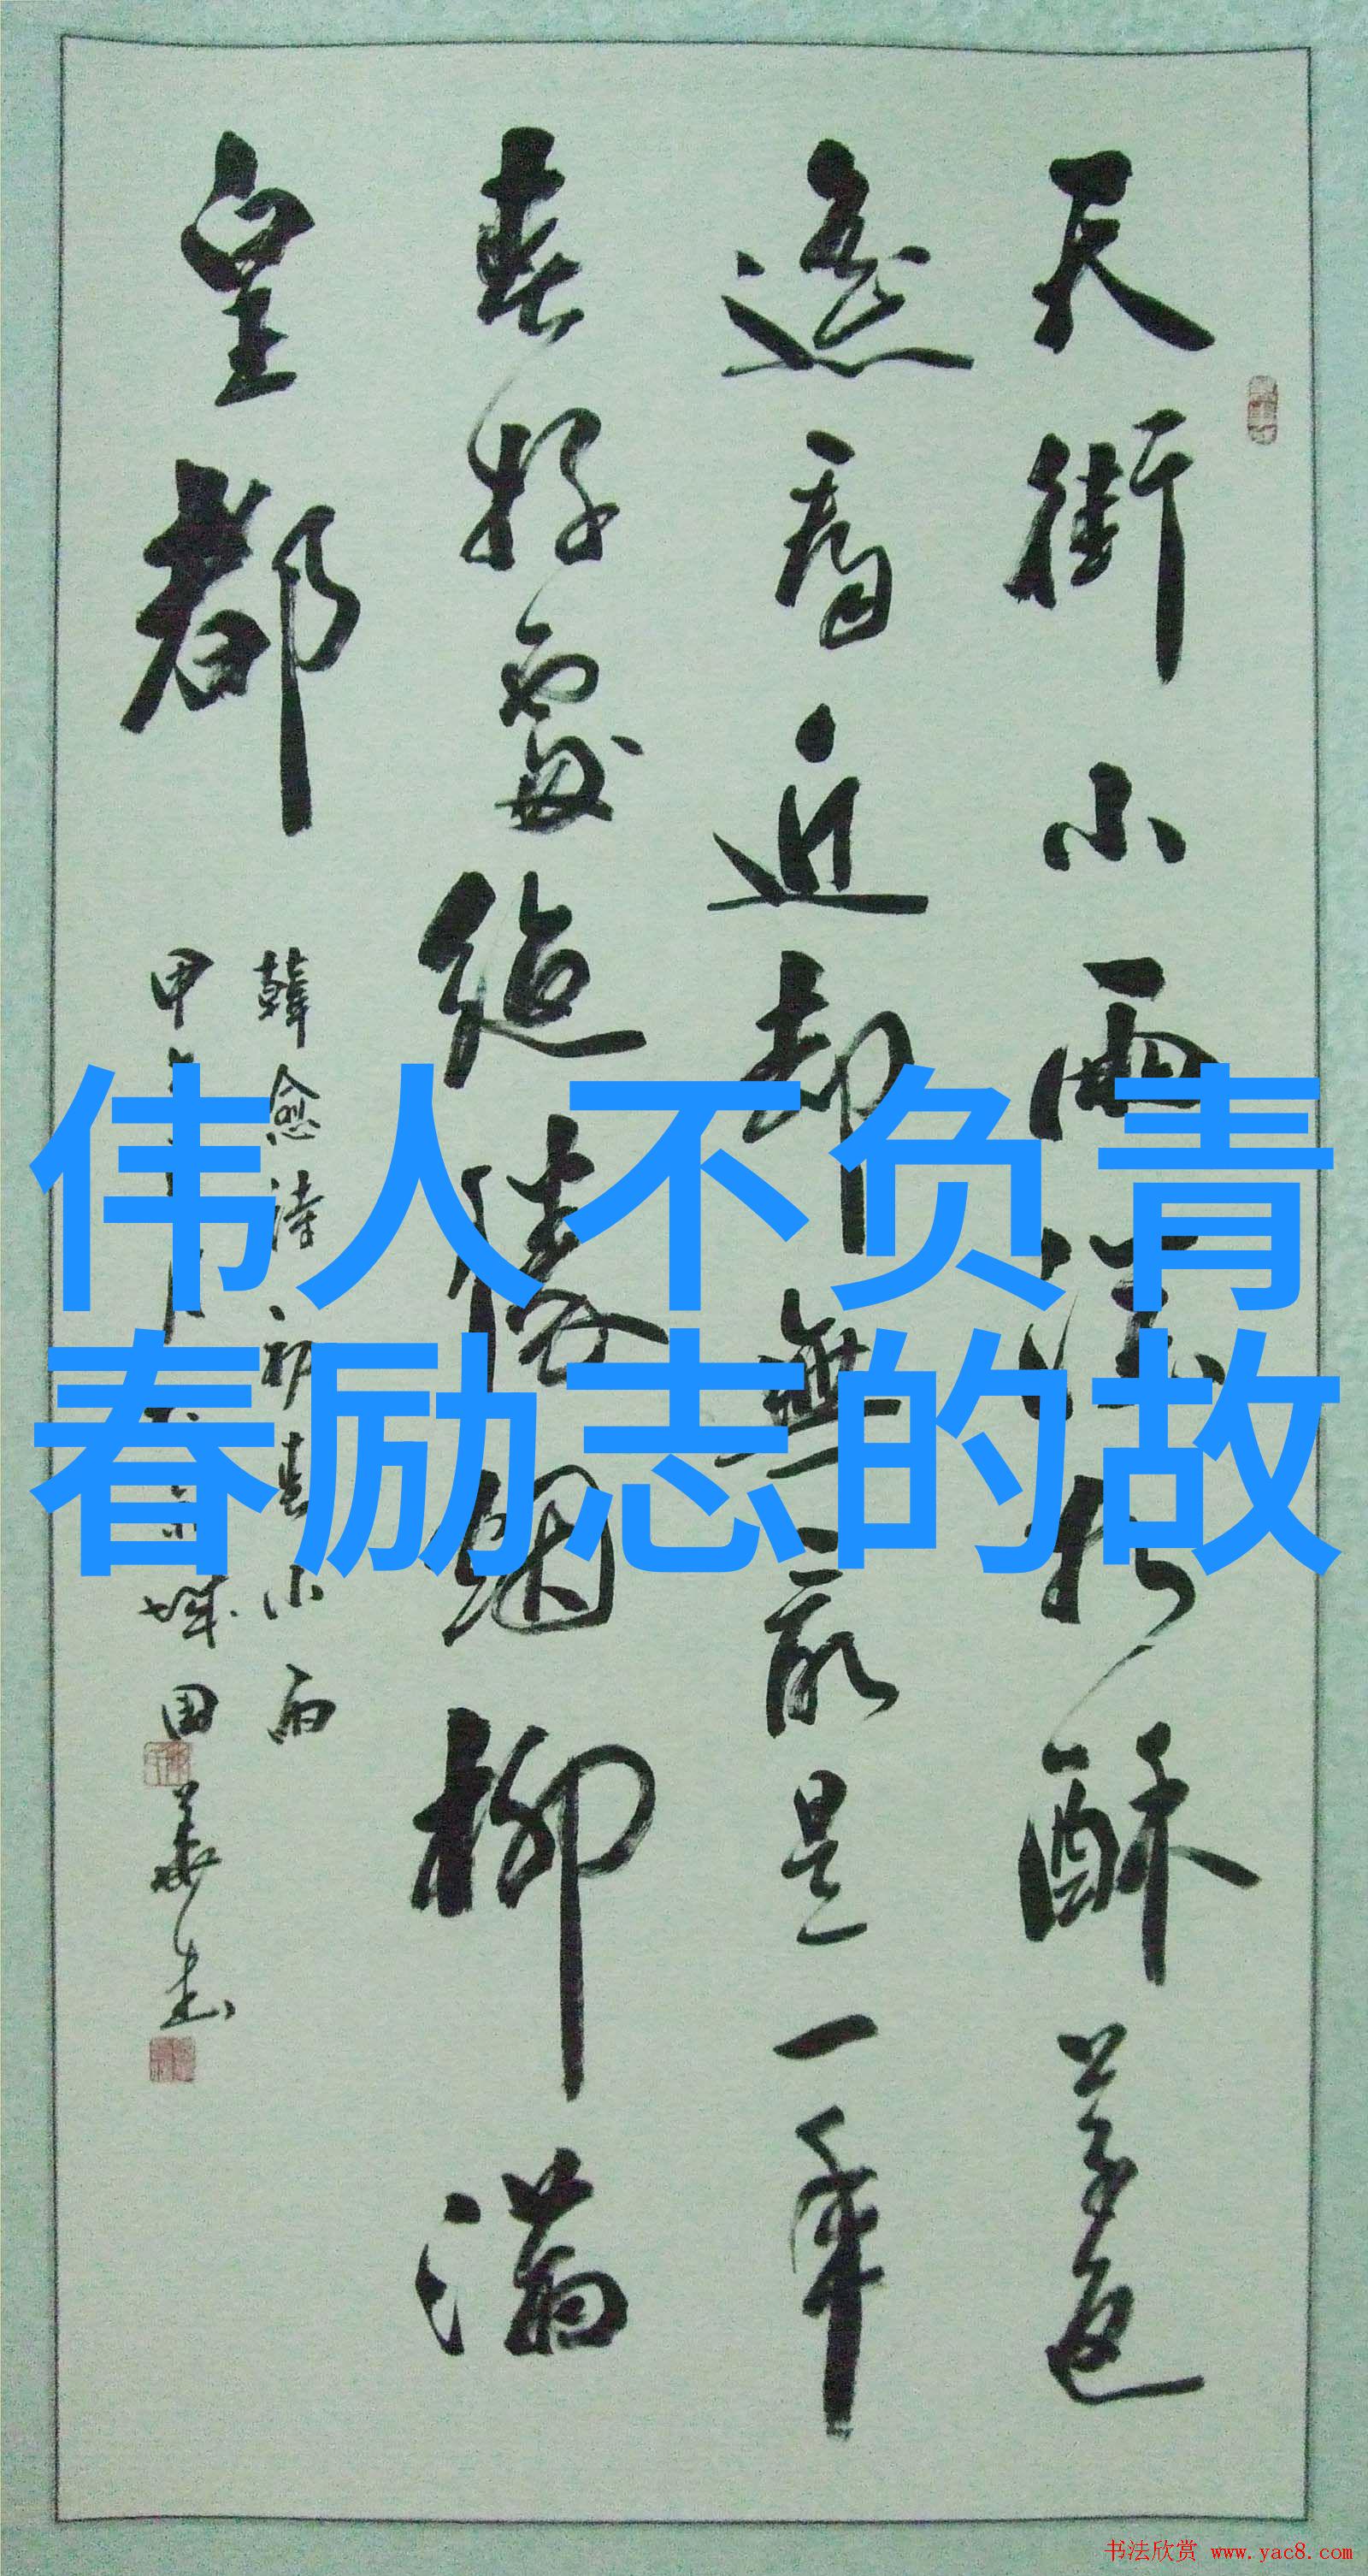 天街小雨潤如酥草色
遙看近却無最是一年
春好處絶勝烟柳滿
皇都
韓愈詩初春小雨
甲
城国華书
伟人不负青
春励志的故
书法欣赏 www.yac8.com